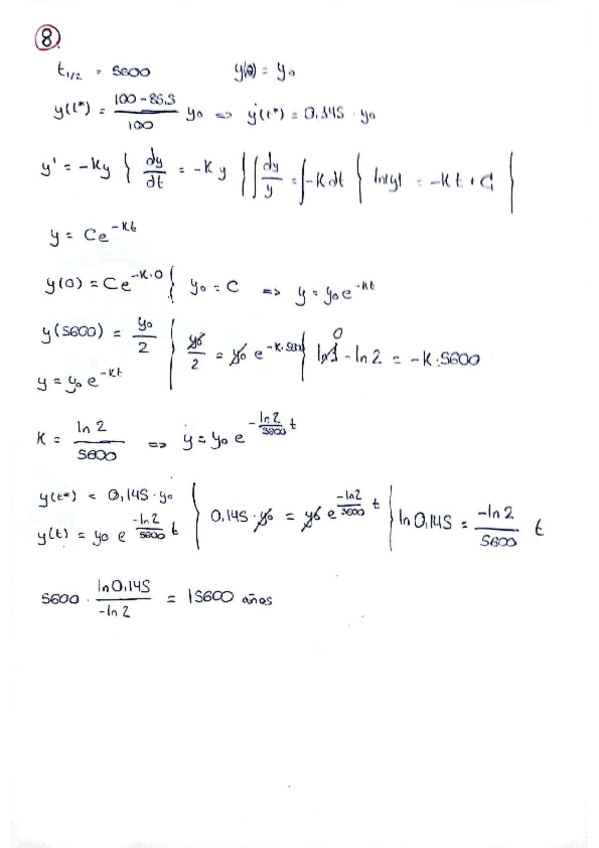 8.
t₁/₂ = 5600 y(0) = y₀
y(t*) = (100 - 85,5)/100 y₀ => y(t*) = 0,145 · y₀
y' = -Ky } dy/dt = -Ky } ∫ dy/y = ∫ -K dt } ln|y| = -Kt + C }
y = Ce^(-Kt)
y(0) = Ce^(-K·0) } y₀ = C => y = y₀e^(-Kt)
y(5600) = y₀/2
y = y₀e^(-Kt) } y₀/2 = y₀ e^(-K·5600) } ln1 - ln2 = -K·5600
0
K = ln 2/5600 => y = y₀ e^(-ln 2/5600 t)
y(t*) = 0,145 · y₀
y(t) = y₀ e^(-ln 2/5600 t) } 0,145 · y₀ = y₀ e^(-ln2/5600 t) } ln 0,145 = -ln 2/5600 t
5600 · ln 0,145/-ln 2 = 15600 años